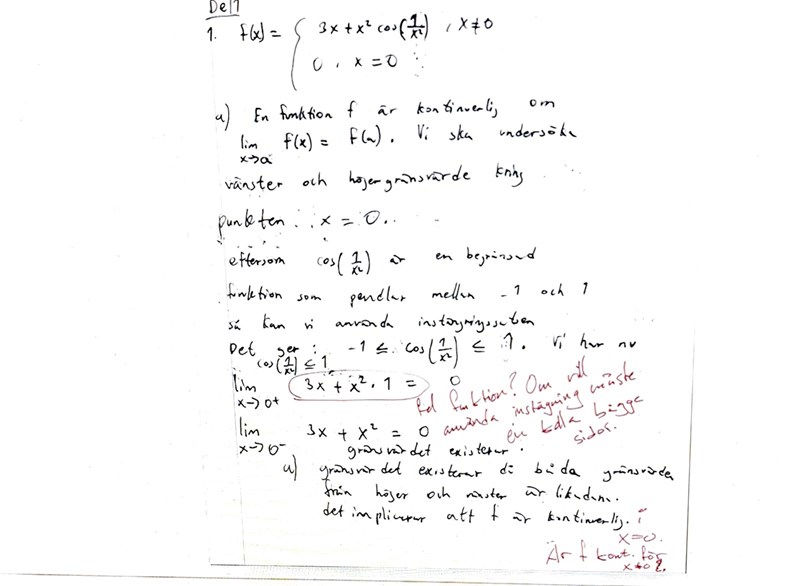 Del 1
1. f(x) = { 3x + x² cos(1/x²) , x ≠ 0
0 , x = 0
a) En funktion f är kontinuerlig om
lim x→a f(x) = f(a). Vi ska undersöka
vänster och höger gränsvärde kring
punkten x = 0.
eftersom cos(1/x²) är en begränsad
funktion som pendlar mellan -1 och 1
så kan vi använda instängningssatsen
Det ger : -1 ≤ cos(1/x²) ≤ 1. Vi har nu
cos(1/x²) ≤ 1
lim x→0+ 3x + x² · 1 = 0
Fel funktion? Om vill
använda instägning måste
en kolla bägge
sidor.
lim x→0- 3x + x² = 0
gränsvärdet existerar.
a) gränsvärdet existerar då båda gränsvärden
från höger och vänster är likadana.
det implicerar att f är kontinuerlig. i
x=0.
Är f kont. för
x≠0?